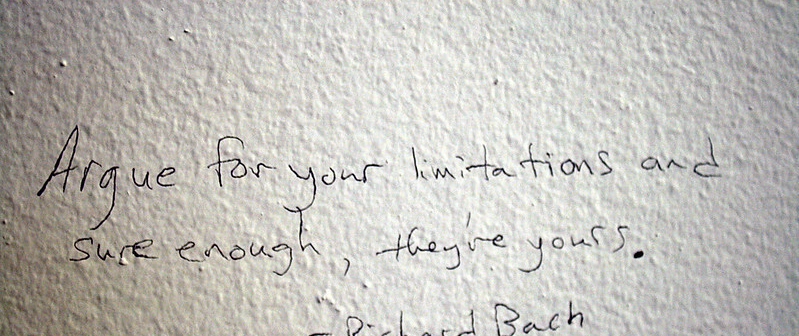 Argue for your limitations and
sure enough, they're yours.
- Richard Bach